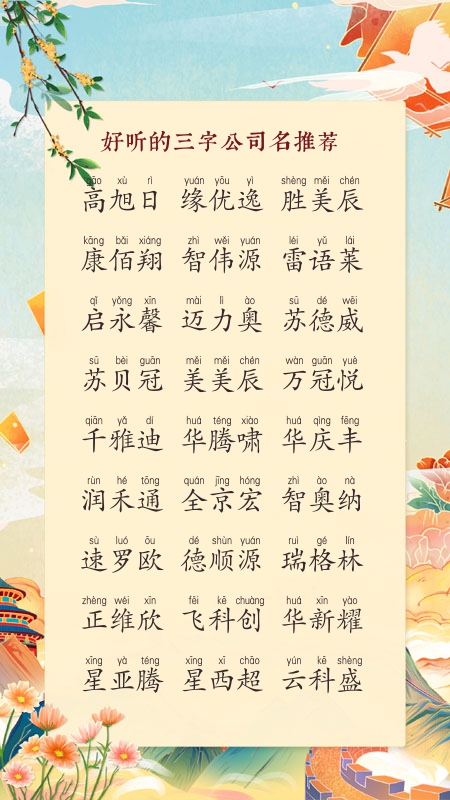 好听的三字公司名推荐
gāo xù rì yuán yōu yì shèng měi chén
高旭日 缘优逸 胜美辰
kāng bǎi xiáng zhì wěi yuán léi yǔ lái
康佰翔 智伟源 雷语莱
qǐ yǒng xīn mài lì ào sū dé wēi
启永馨 迈力奥 苏德威
sū bèi guān měi měi chén wàn guān yuè
苏贝冠 美美辰 万冠悦
qiān yǎ dí huá téng xiào huá qìng fēng
千雅迪 华腾啸 华庆丰
rùn hé tōng quán jīng hóng zhì ào nà
润禾通 全京宏 智奥纳
sù luó ōu dé shùn yuán ruì gé lín
速罗欧 德顺源 瑞格林
zhèng wéi xīn fēi kē chuàng huá xīn yào
正维欣 飞科创 华新耀
xīng yà téng xīng xī chāo yún kē shèng
星亚腾 星西超 云科盛